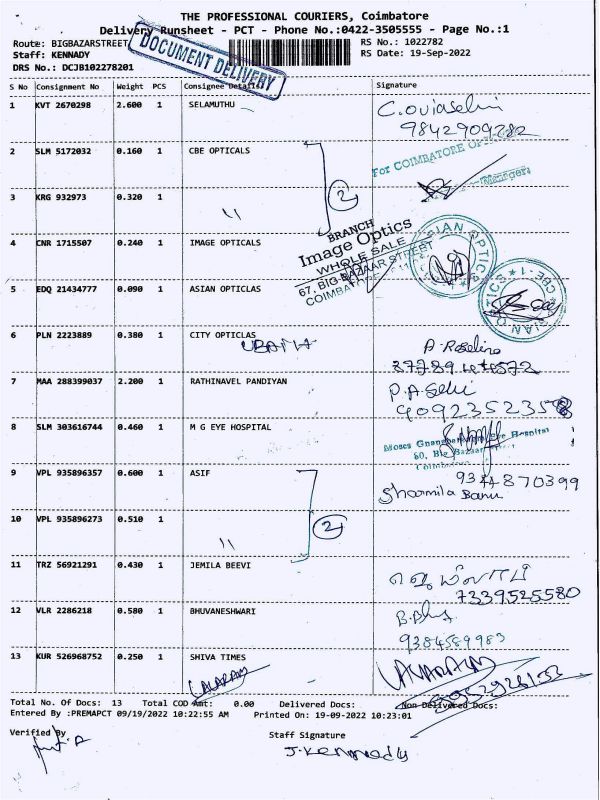 THE PROFESSIONAL COURIERS, Coimbatore
Delivery Runsheet - PCT - Phone No.:0422-3505555 - Page No.:1
Route: BIGBAZARSTREET
RS No.: 1022782
Staff: KENNADY
RS Date: 19-Sep-2022
DRS No.: DCJB102278201
DOCUMENT DELIVERY
S No Consignment No Weight PCS Consignee Details Signature
1 KVT 2670298 2.600 1 SELAMUTHU
9842909282
2 SLM 5172032 0.160 1 CBE OPTICALS
For COIMBATORE
Manager
3 KRG 932973 0.320 1 11
2
BRANCH
Image Optics
WHOLE SALE
67, BIG BAZAAR STREET
4 CNR 1715507 0.240 1 IMAGE OPTICALS
ASIAN OPTICS
5 EDQ 21434777 0.090 1 ASIAN OPTICLAS
ASIAN OPTICS CBE-1
6 PLN 2223889 0.380 1 CITY OPTICLAS
A. Roseline
7 MAA 288399037 2.200 1 RATHINAVEL PANDIYAN
8 SLM 303616744 0.460 1 M G EYE HOSPITAL
Eye Hospital
60, Big Bazaar
9 VPL 935896357 0.600 1 ASIF
Sharmila Banu
10 VPL 935896273 0.510 1 11
2
11 TRZ 56921291 0.430 1 JEMILA BEEVI
7339525580
12 VLR 2286218 0.580 1 BHUVANESHWARI
9384589983
13 KUR 526968752 0.250 1 SHIVA TIMES
Total No. Of Docs: 13 Total COD Amt: 0.00 Delivered Docs: Non Delivered Docs:
Entered By :PREMAPCT 09/19/2022 10:22:55 AM Printed On: 19-09-2022 10:23:01
Verified By
Staff Signature
J. Kennady